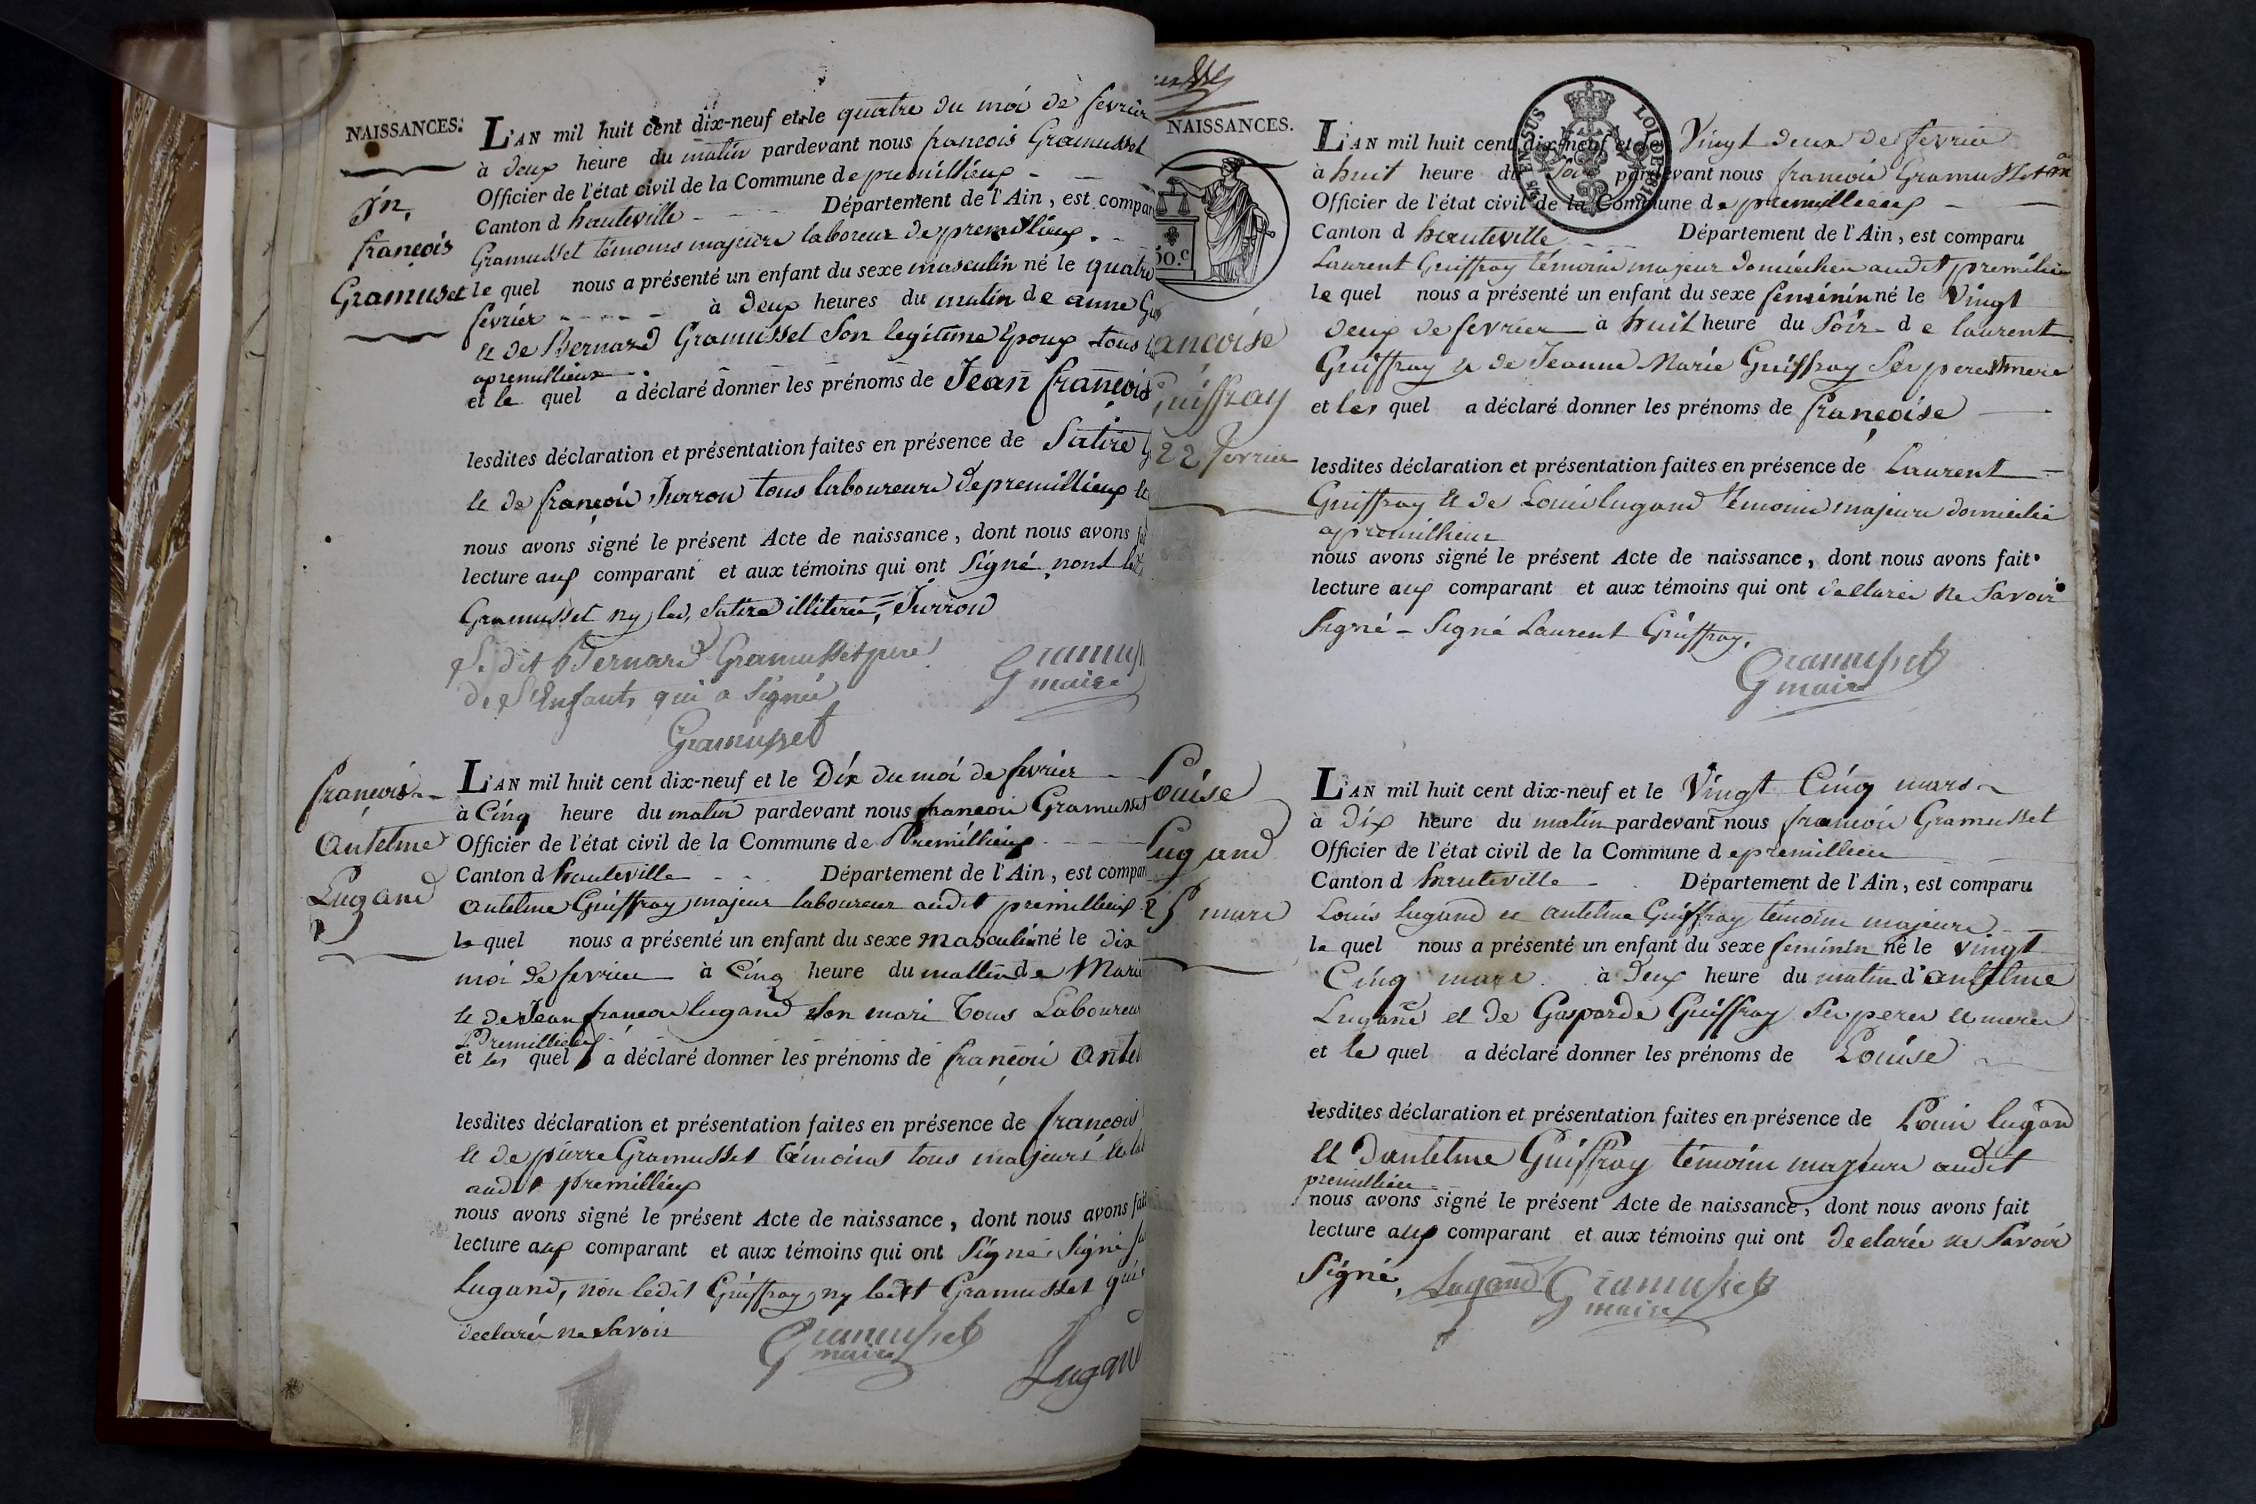 NAISSANCES.
Jn,
françois
Gramusset
L'AN mil huit cent dix-neuf et le quatre du moi de fevrier
à deux heure du matin pardevant nous françois Gramusset
Officier de l'état civil de la Commune de premillieux
Canton d hauteville Département de l'Ain, est compar
Gramusset témoins majeure laboreur de premillieux.
le quel nous a présenté un enfant du sexe masculin né le quatre
fevrier à deux heures du matin de anne
et de Bernard Gramusset son legitime Epoux tous
a premillieux
et le quel a déclaré donner les prénoms de Jean françois
lesdites déclaration et présentation faites en présence de Satire
et de françois Jurron tous laboureurs de premillieux
nous avons signé le présent Acte de naissance, dont nous avons
lecture aux comparant et aux témoins qui ont Signé, nont
Gramusset ny led. Satire illiterée, Jurron
Bernard Gramusset pere
de l'Enfants qui a Signé
Gramus
maire
Gramusset
françois
Antelme
Lugand
L'AN mil huit cent dix-neuf et le Dix du moi de fevrier
à Cinq heure du matin pardevant nous françois Gramusset
Officier de l'état civil de la Commune de Premillieux
Canton d hauteville Département de l'Ain, est compar
antelme Guiffray majeur laboureur audit premillieux
le quel nous a présenté un enfant du sexe masculin né le dix
moi de fevrier à Cinq heure du mattin de Marie
et de Jean françois lugand son mari Tous Laboureur
Premillieux
et les quel a déclaré donner les prénoms de françoi Antel
lesdites déclaration et présentation faites en présence de françois
et de pierre Gramusset témoins tous majeurs
audit Premillieux
nous avons signé le présent Acte de naissance, dont nous avons fait
lecture aux comparant et aux témoins qui ont Signé, Signé
Lugand, non ledit Guiffray ny ledit Gramusset qui
declaré ne Savoir
Gramusset
maire
Lugand
NAISSANCES.
50.c
ançoise
Guiffray
22 fevrier
SUS LOI DE 1816
L'AN mil huit cent dix-neuf et le Vingt deux de fevrier
à huit heure du Soir pardevant nous françois Gramusset
Officier de l'état civil de la Commune de premillieux
Canton d hauteville Département de l'Ain, est comparu
Laurent Guiffray témoins majeur domicilier audit premilieu
le quel nous a présenté un enfant du sexe feminin né le Vingt
deux de fevrier à huit heure du Soir de laurent
Guiffray et de Jeanne Marie Guiffray Ses pere et mere
et les quel a déclaré donner les prénoms de françoise
lesdites déclaration et présentation faites en présence de Laurent
Guiffray et de Louis lugand témoins majeure domicilié
a premillieux
nous avons signé le présent Acte de naissance, dont nous avons fait
lecture aux comparant et aux témoins qui ont declarée ne Savoir
Signé - Signé Laurent Guiffray.
Gramusset
maire
Louise
Lugand
25 mars
L'AN mil huit cent dix-neuf et le Vingt Cinq mars
à dix heure du matin pardevant nous françois Gramusset
Officier de l'état civil de la Commune de premillieu
Canton d hauteville Département de l'Ain, est comparu
Louis lugand et antelme Guiffray témoins majeure
le quel nous a présenté un enfant du sexe feminin né le vingt
Cinq mars à deux heure du matin d'antelme
Lugand et de Gasparde Guiffray Ses peres et meres
et le quel a déclaré donner les prénoms de Louise
lesdites déclaration et présentation faites en présence de Louis lugand
et Dantelme Guiffray témoins majeure audit
premillieu
nous avons signé le présent Acte de naissance, dont nous avons fait
lecture aux comparant et aux témoins qui ont declarée ne Savoir
Signé, Lugand Gramusset
maire